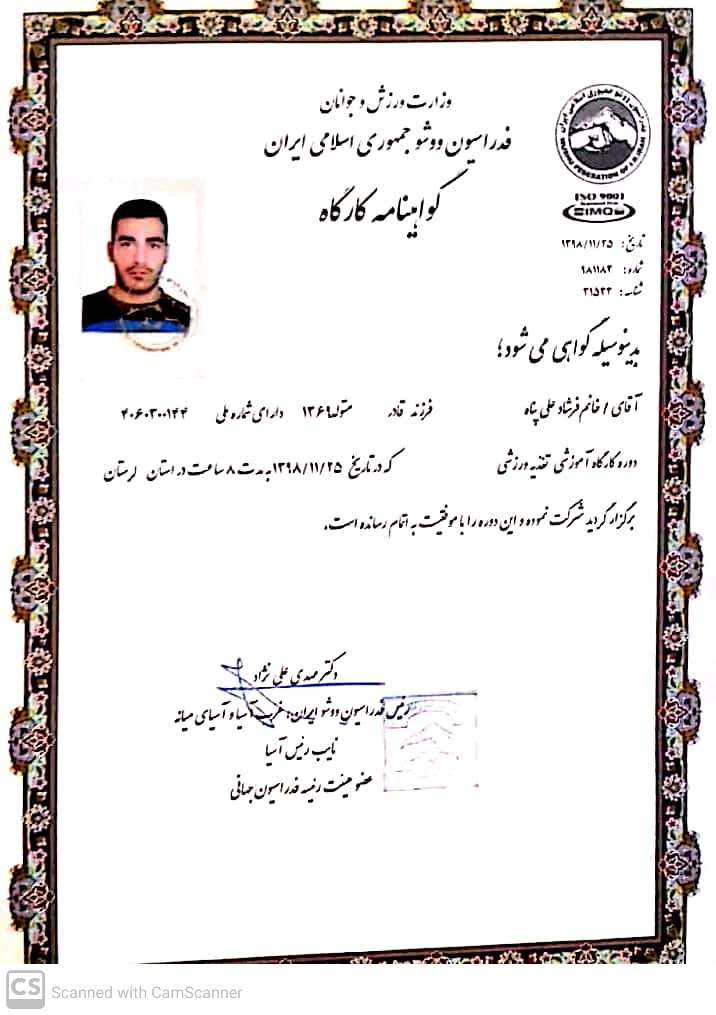 وزارت ورزش و جوانان
فدراسیون ووشو جمهوری اسلامی ایران
گواهینامه کارگاه
فدراسیون ووشو جمهوری اسلامی ایران
WUSHU FEDERATION OF I.R.IRAN
ISO 9001
IMQ
تاریخ: ۱۳۹۸/۱۱/۲۵
شماره: ۹۸۱۱۸۲
شناسه: ۲۱۵۳۲
بدینوسیله گواهی می شود؛
آقای / خانم فرشاد علی پناه فرزند قادر متولد ۱۳۶۹ دارای شماره ملی ۴۰۶۰۳۰۰۱۴۴
دوره کارگاه آموزشی تغذیه ورزشی که در تاریخ ۱۳۹۸/۱۱/۲۵ به مدت ۸ ساعت در استان لرستان
برگزار گردید شرکت نموده و این دوره را با موفقیت به اتمام رسانده است.
دکتر مهدی علی نژاد
رئیس فدراسیون ووشو ایران، غرب آسیا و آسیای میانه
نایب رئیس آسیا
عضو هیئت رئیسه فدراسیون جهانی
CS Scanned with CamScanner